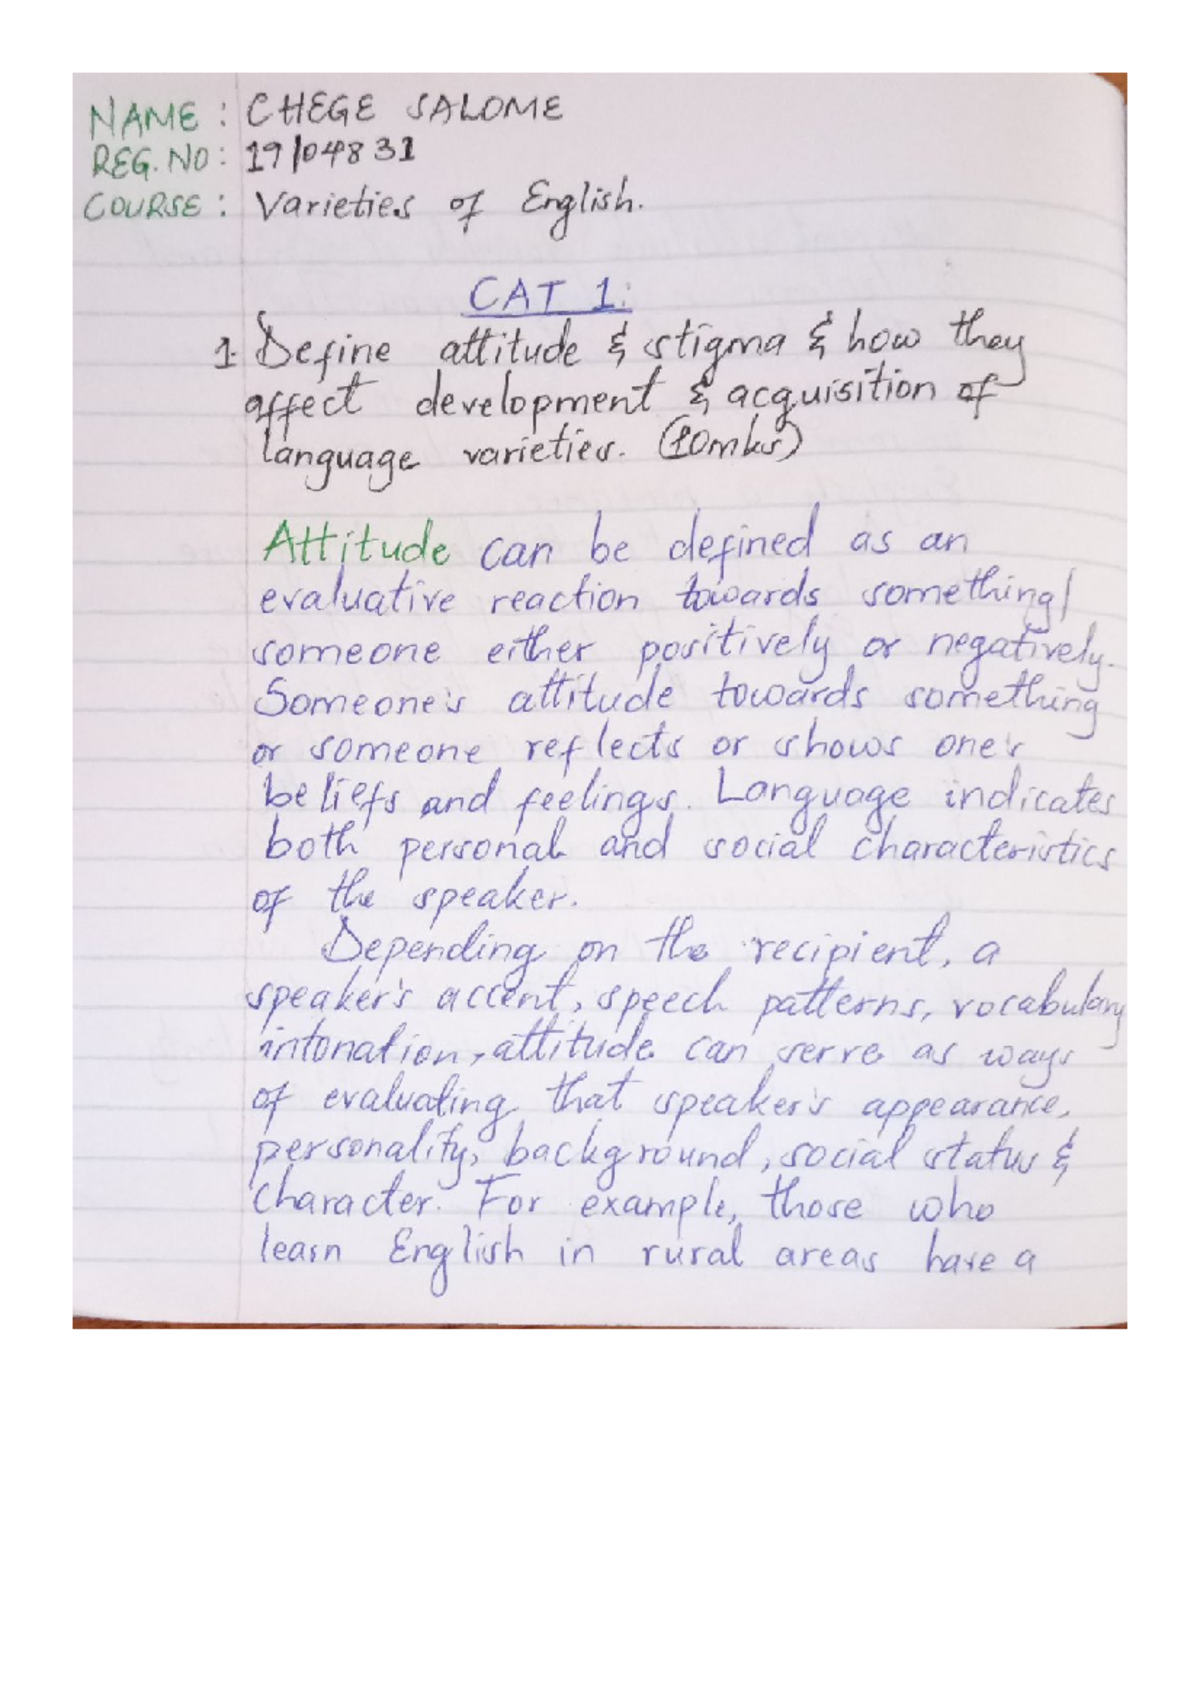 NAME : CHEGE SALOME
REG. NO : 19/04831
COURSE : Varieties of English.
CAT 1:
1. Define attitude & stigma & how they
affect development & acquisition of
language varieties. (10mks)
Attitude can be defined as an
evaluative reaction towards something/
someone either positively or negatively.
Someone's attitude towards something
or someone reflects or shows one's
beliefs and feelings. Language indicates
both personal and social characteristics
of the speaker.
Depending on the recipient, a
speaker's accent, speech patterns, vocabulary
intonation, attitude can serve as ways
of evaluating that speaker's appearance,
personality, background, social status &
character. For example, those who
learn English in rural areas have a